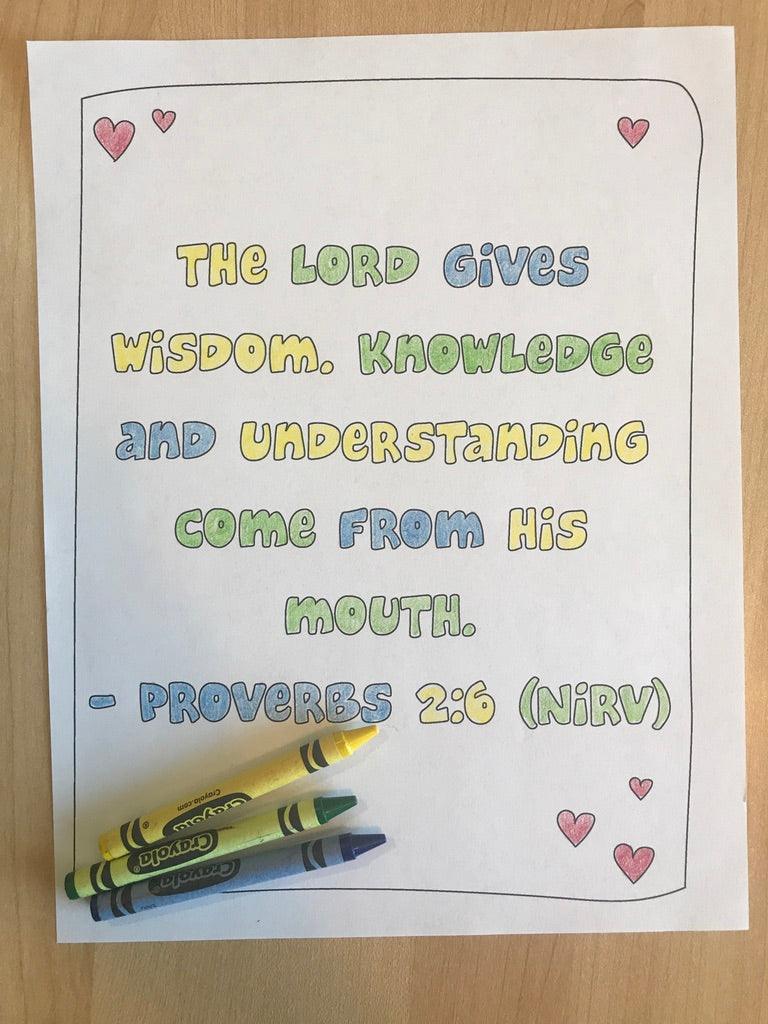 THE LORD GiVES
WiSDOM. KNOWLEDGE
AND UNDERSTANDING
COME FROM HiS
MOUTH.
- PROVERBS 2:6 (NiRV)
Crayola.com
Crayola®
Crayola®
Crayola®